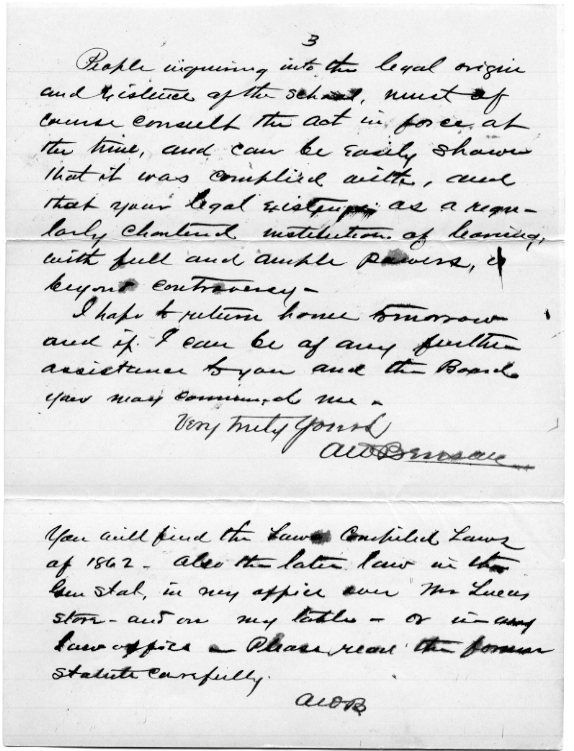 3
People inquiring into the legal origin
and existence of the school, must of
course consult the Act in force at
the time, and can be easily shown
that it was complied with, and
that your legal existence as a regu-
larly chartered institution of learning,
with full and ample powers, is
beyond controversy -
I hope to return home tomorrow
and if I can be of any further
assistance to you and the Board
you may command me -
Very truly Yours
AW Benson
You will find the Law Compiled Laws
of 1862 - also the later law in the
Gen Stat, in my office over Mr Lucas
store - and on my table - or in any
law office - Please read the former
statute carefully.
AWB